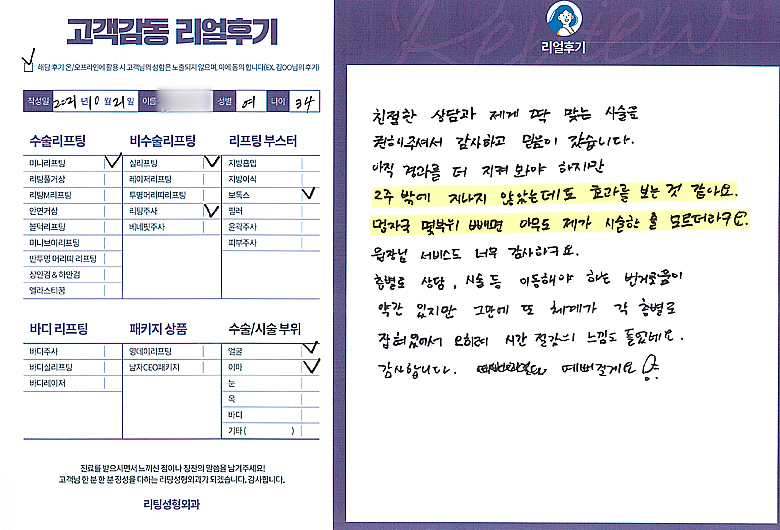 고객감동 리얼후기
해당 후기 온/오프라인에 활용 시 고객님의 성함은 노출되지 않으며, 이에 동의 합니다(EX. 김OO님의 후기)
작성일 2021년 10월 21일 이름 성별 여 나이 34
수술리프팅
미니리프팅
리팅풀거상
리팅M리프팅
안면거상
볼턱리프팅
미니브이리프팅
반투명 머리띠 리프팅
상안검 & 하안검
엘라스티꿈
비수술리프팅
실리프팅
레이저리프팅
투명머리띠리프팅
리팅주사
베네핏주사
리프팅 부스터
지방흡입
지방이식
보톡스
필러
윤곽주사
피부주사
바디 리프팅
바디주사
바디실리프팅
바디레이저
패키지 상품
영데이리프팅
남자CEO패키지
수술/시술 부위
얼굴
이마
눈
목
바디
기타 ( )
진료를 받으시면서 느끼신 점이나 칭찬의 말씀을 남겨주세요!
고객님 한 분 한 분 정성을 다하는 리팅성형외과가 되겠습니다. 감사합니다.
리팅성형외과
Review
리얼후기
친절한 상담과 제게 딱 맞는 시술을
권해주셔서 감사하고 믿음이 갔습니다.
아직 결과를 더 지켜 봐야 하지만
2주 밖에 지나지 않았는데도 효과를 보는 것 같아요.
멍자국 몇부위 빼면 아무도 제가 시술한 줄 모르더라구요.
원장님 서비스도 너무 감사하구요.
층별로 상담, 시술 등 이동해야 하는 번거로움이
약간 있지만 그만에 또 체계가 각 층별로
잡혀있어서 오히려 시간 절감의 느낌도 들었네요.
감사합니다. 예뻐질게요